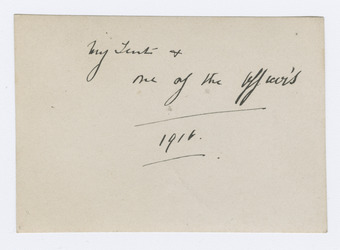 My Tent &
one of the officers
1916.